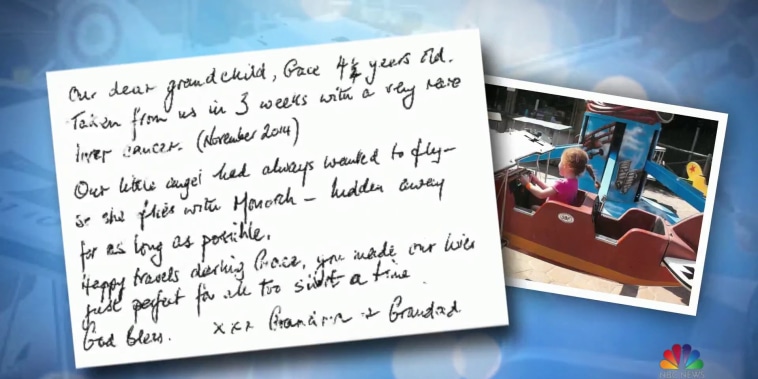 Our dear grandchild, Grace 4¼ years old.
Taken from us in 3 weeks with a very rare
liver cancer. (November 2014)
Our little angel had always wanted to fly–
so she flies with Monarch – hidden away
for as long as possible.
Happy travels darling Grace, you made our lives
just perfect for all too short a time.
God Bless. xxx Grandma + Grandad
NBC NEWS